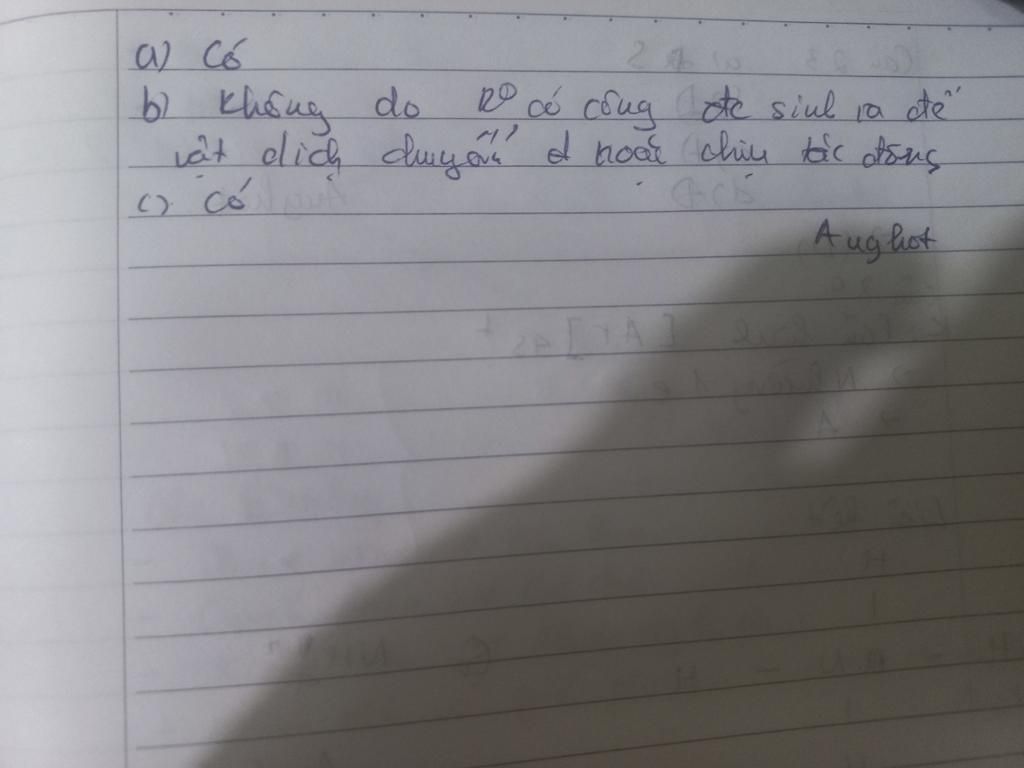 a) Có
b) Không do có công đc sinh ra để
vật dịch chuyển hoặc chịu tác động
c) Có